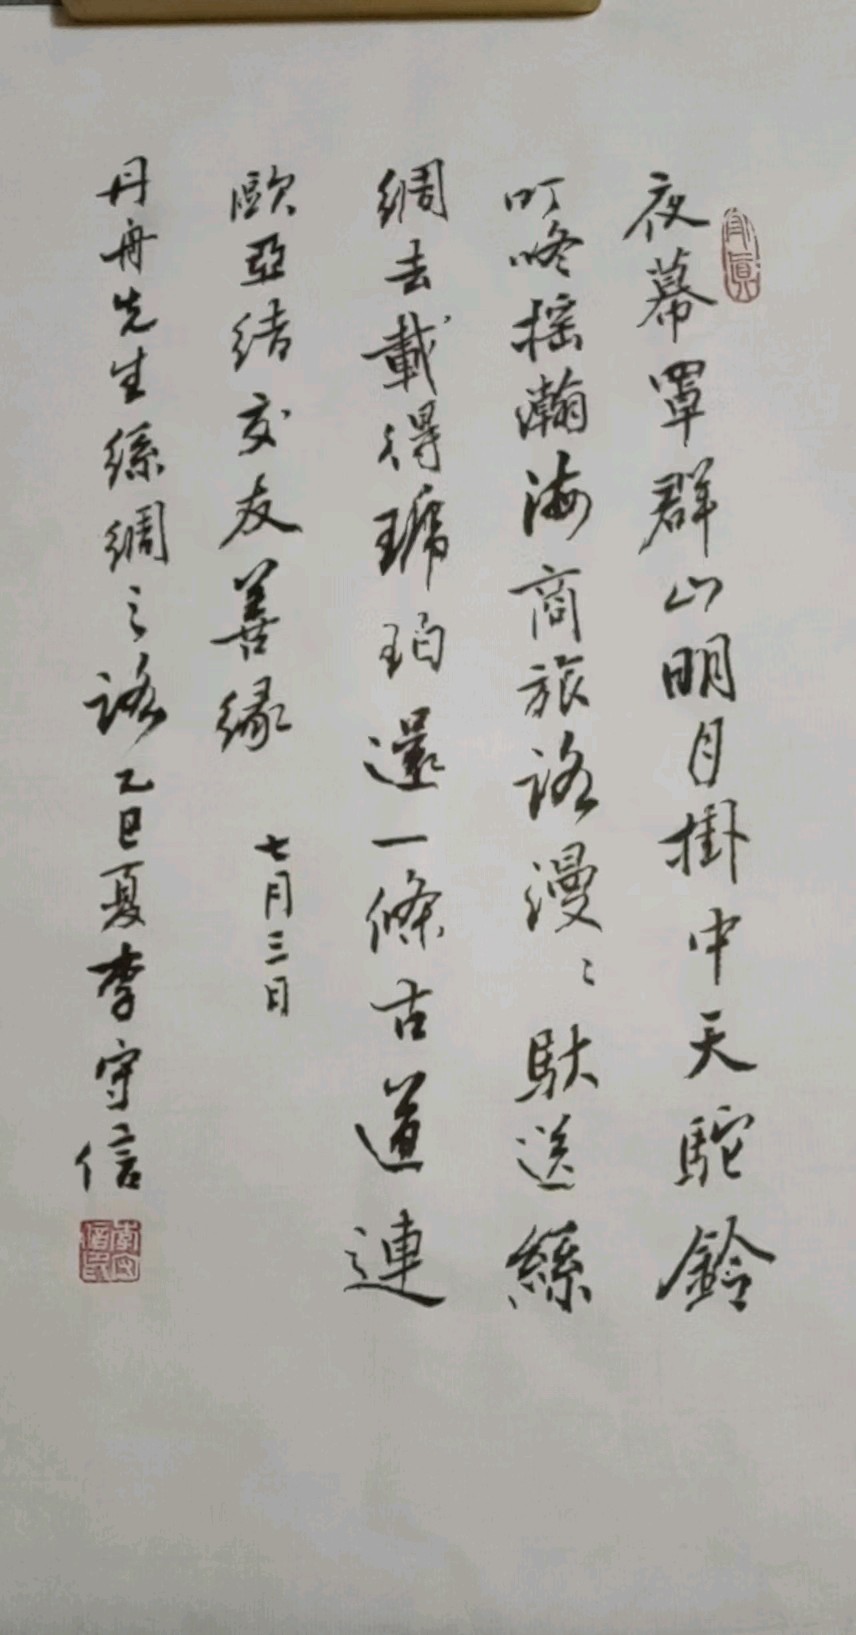 夜幕罩群山明月掛中天駝鈴
叮咚摇瀚海商旅路漫〻馱送絲
綢去載得琥珀還一條古道連
歐亞结交友善缘
七月三日
丹舟先生絲綢之路乙巳夏李守信